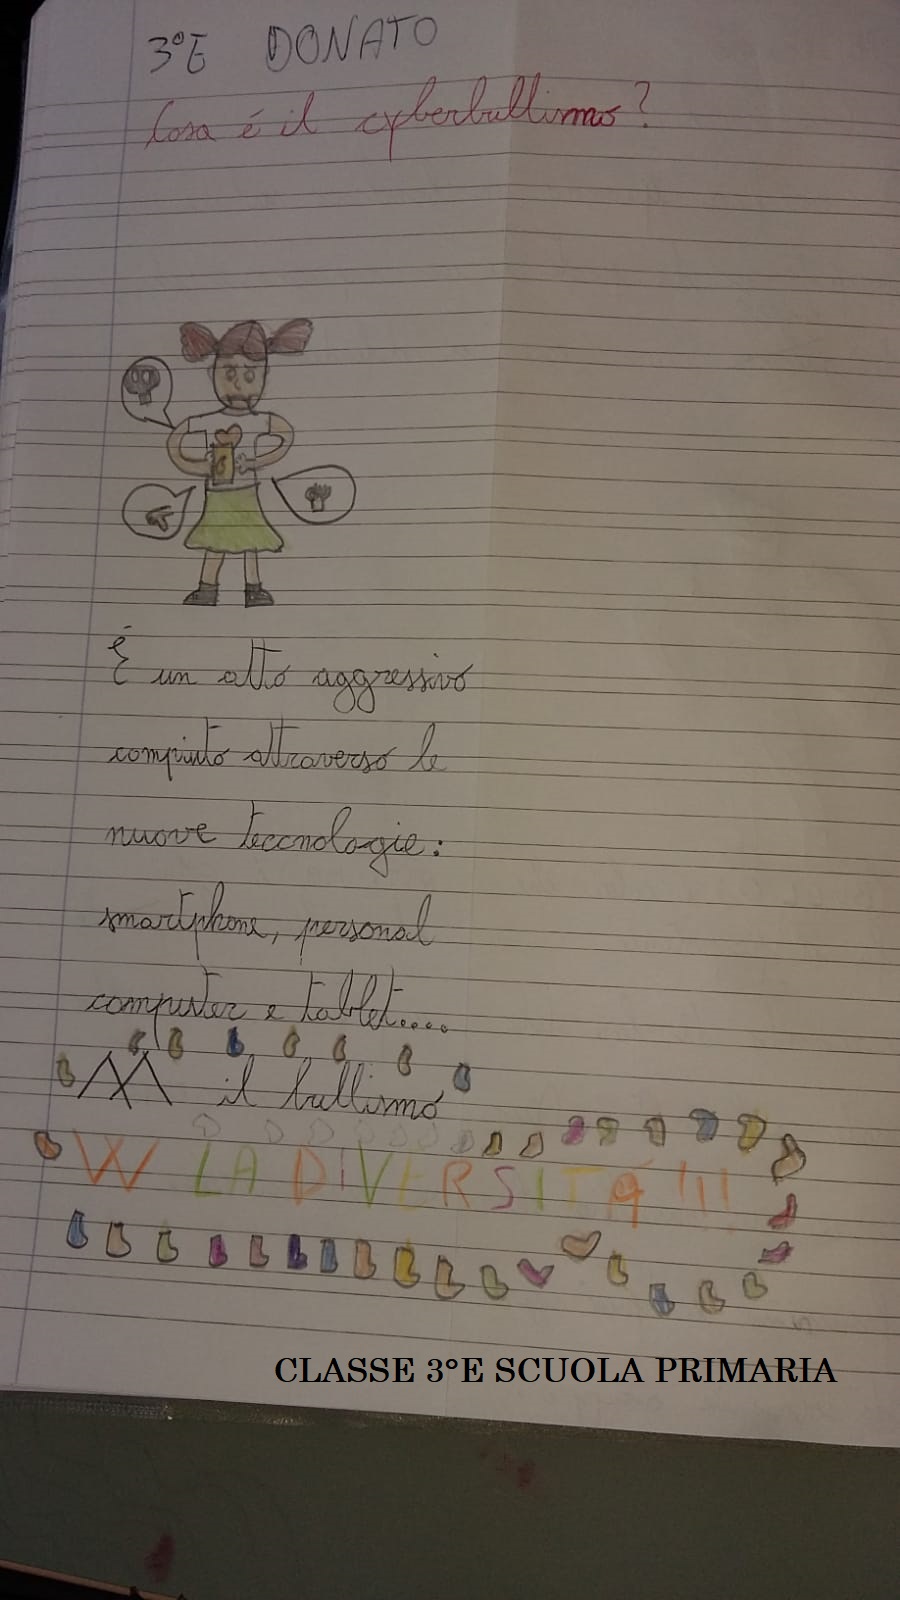 3°E DONATO
Cosa é il cyberbullismo?
É un atto aggressivo
compiuto attraverso le
nuove teccnologie:
smartphone, personal
computer e tablet....
M il bullismo
W LA DIVERSITÁ !!!
CLASSE 3°E SCUOLA PRIMARIA